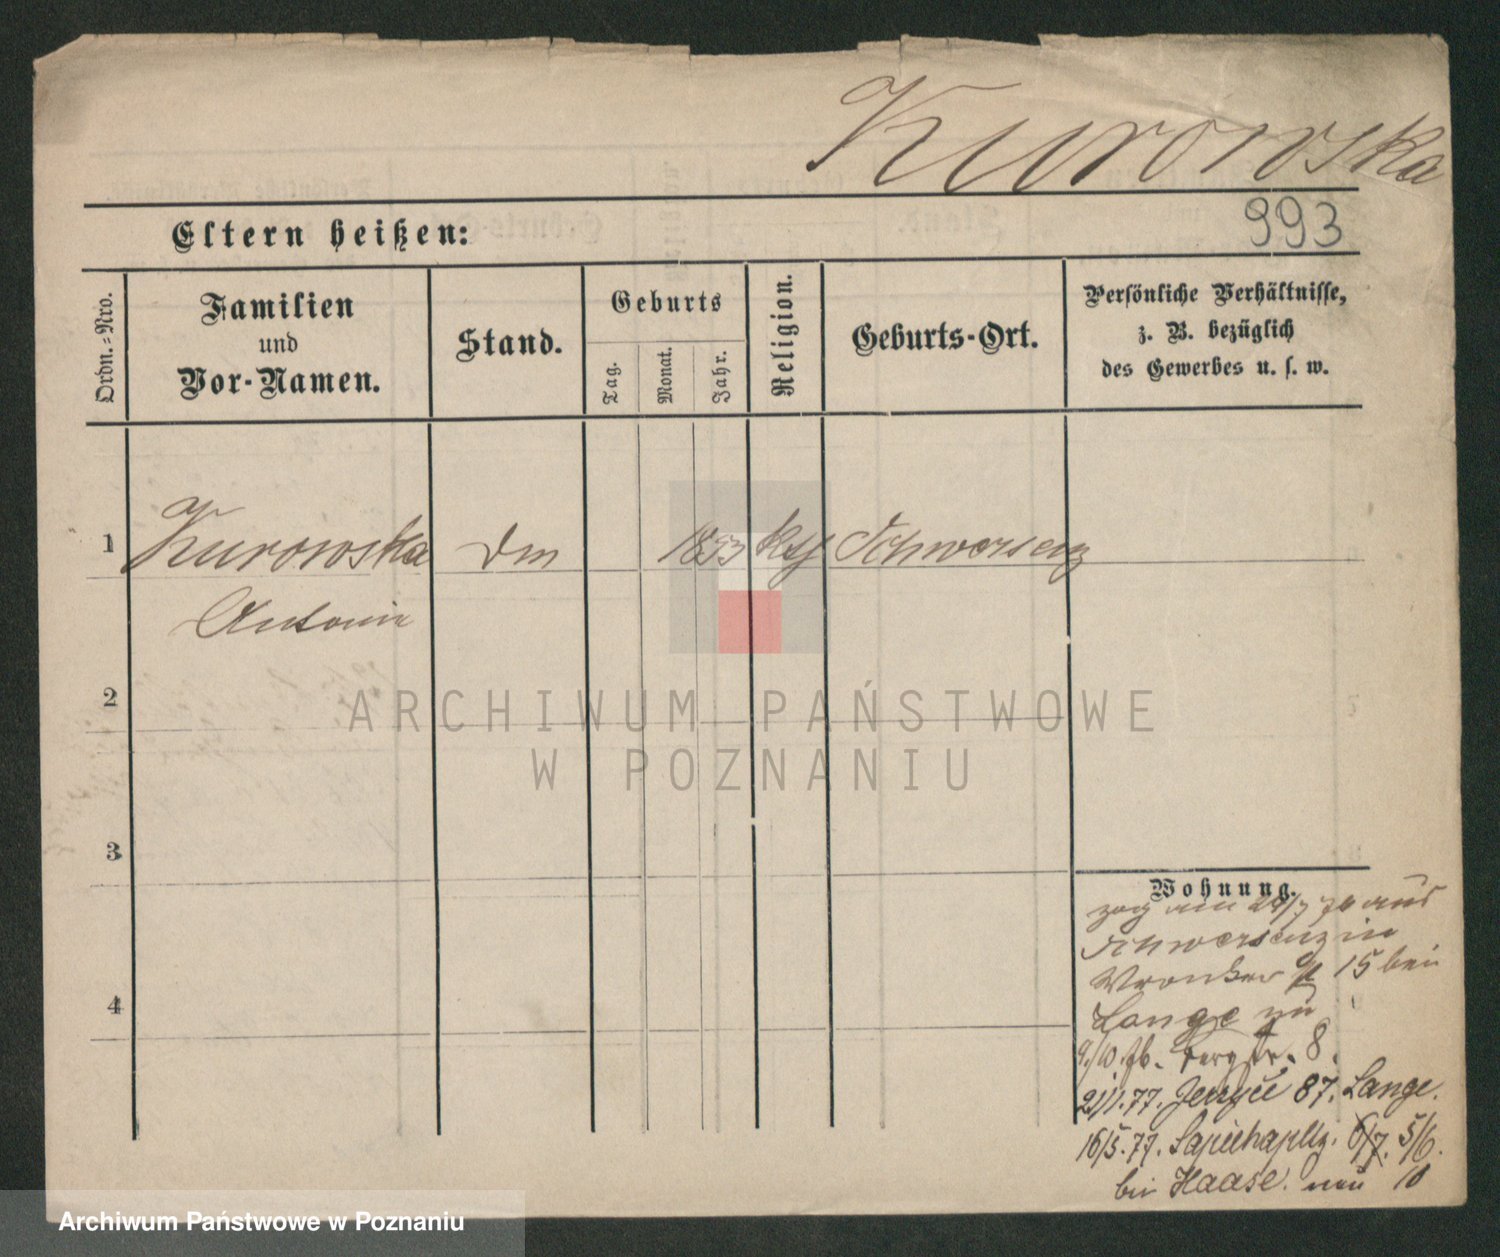 Kurowska
993
Eltern heißen:
Ordn.-Nro.
Familien
und
Vor-Namen.
Stand.
Geburts
Tag.
Monat.
Jahr.
Religion.
Geburts-Ort.
Persönliche Verhältnisse,
z. B. bezüglich
des Gewerbes u. s. w.
1
Kurowska
1853
Schwersenz
Antonie
2
ARCHIWUM PAŃSTWOWE
W POZNANIU
3
Wohnung.
zog am 24/7 76 aus
Schwersenz in
Wronker 15 bei
Lange zu
4
9./10. 76. Bergstr. 8.
21/1. 77. Jerzyce 87. Lange.
16/5. 77. Sapiehapltz. 6/7. 5/6.
bei Haase. neu 10
Archiwum Państwowe w Poznaniu